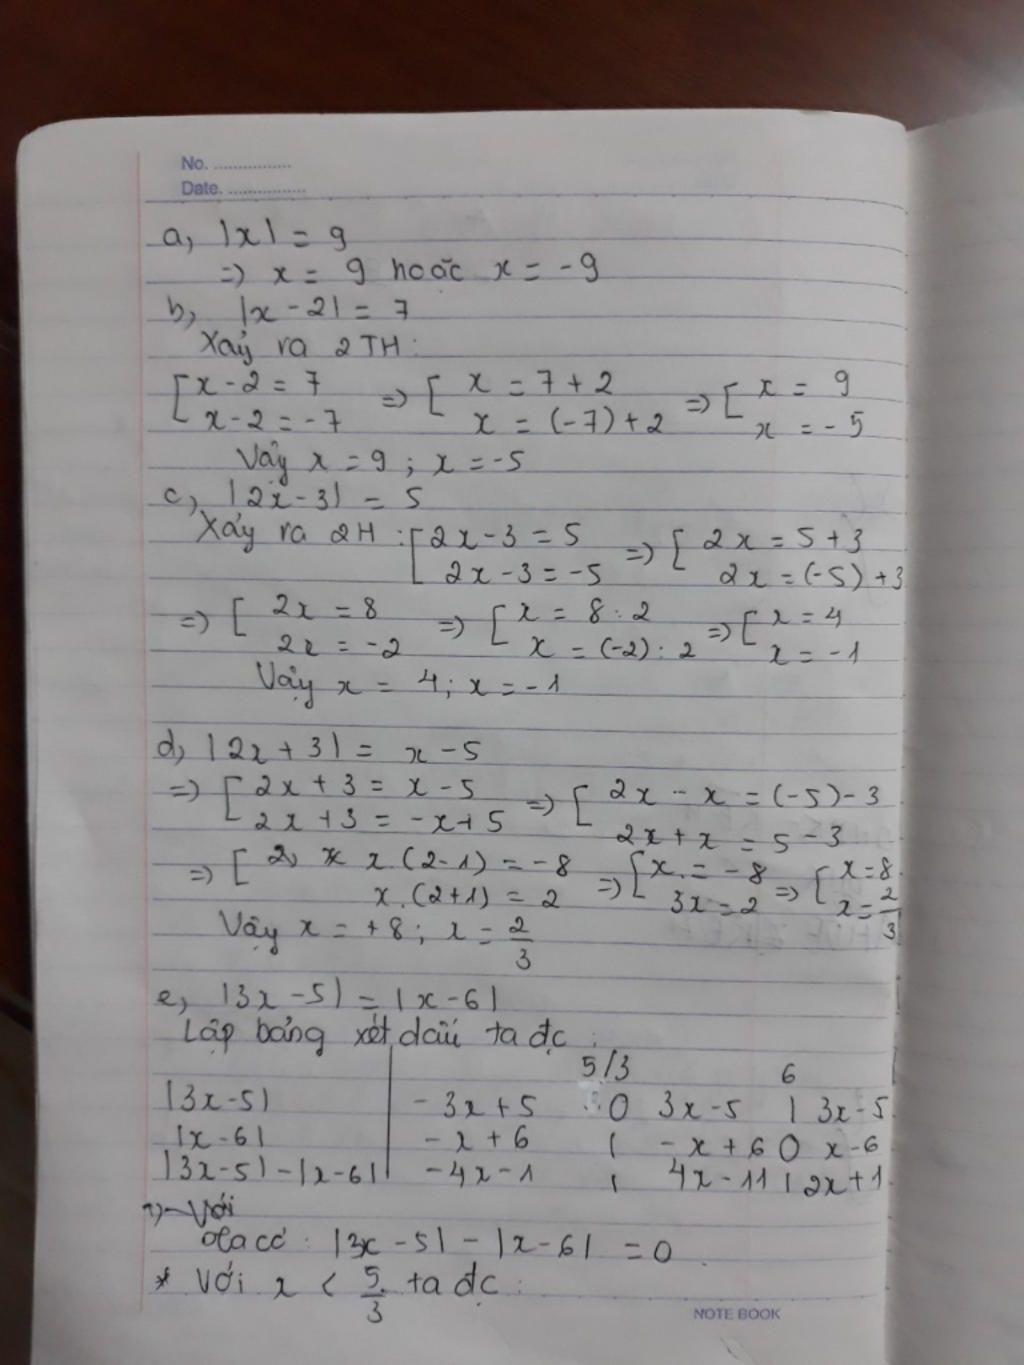 No. ................
Date. ................
a, |x| = 9
=> x = 9 hoặc x = -9
b, |x - 2| = 7
Xảy ra 2 TH:
[ x - 2 = 7 => [ x = 7 + 2 => [ x = 9
x - 2 = -7 x = (-7) + 2 x = -5
Vậy x = 9 ; x = -5
c, |2x - 3| = 5
Xảy ra 2H : [ 2x - 3 = 5 => [ 2x = 5 + 3
2x - 3 = -5 2x = (-5) + 3
=> [ 2x = 8 => [ x = 8 : 2 => [ x = 4
2x = -2 x = (-2) : 2 x = -1
Vậy x = 4 ; x = -1
d, |2x + 3| = x - 5
=> [ 2x + 3 = x - 5 => [ 2x - x = (-5) - 3
2x + 3 = -x + 5 2x + x = 5 - 3
=> [ x . (2 - 1) = -8 => [ x = -8 => [ x = 8
x . (2 + 1) = 2 3x = 2 x = 2/3
Vậy x = +8 ; x = 2/3
e, |3x - 5| = |x - 6|
Lập bảng xét dấu ta đc :
5/3 6
|3x - 5| -3x + 5 0 3x - 5 | 3x - 5
|x - 6| -x + 6 | -x + 6 0 x - 6
|3x - 5| - |x - 6| -4x - 1 | 4x - 11 | 2x + 1
Với
có : |3x - 5| - |x - 6| = 0
* Với x < 5/3 ta đc :
NOTE BOOK